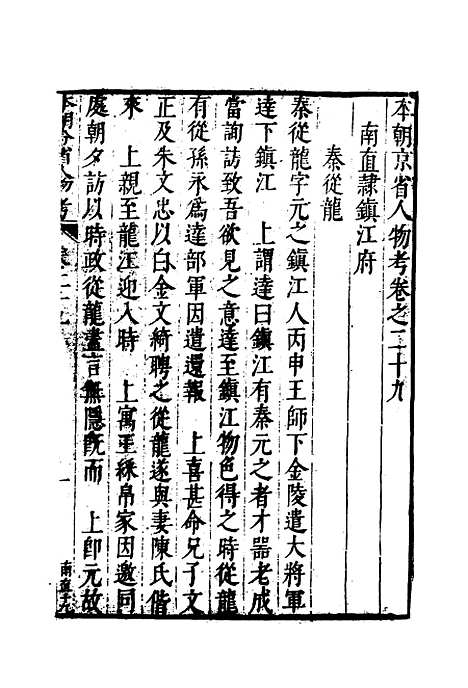 本朝京省人物考卷之二十九
南直隸鎮江府
秦從龍
秦從龍字元之鎮江人丙申王師下金陵遣大將軍
達下鎮江　上謂達曰鎮江有秦元之者才器老成
當詢訪致吾欲見之意達至鎮江物色得之時從龍
有從孫永爲達部軍因遣還報　上喜甚命兄子文
正及朱文忠以白金文綺聘之從龍遂與妻陳氏偕
來　上親至龍江迎入時　上寓王綵帛家因邀同
處朝夕訪以時政從龍盡言無隱旣而　上卽元故
本朝分省人物考
卷二十九
一
南直十九